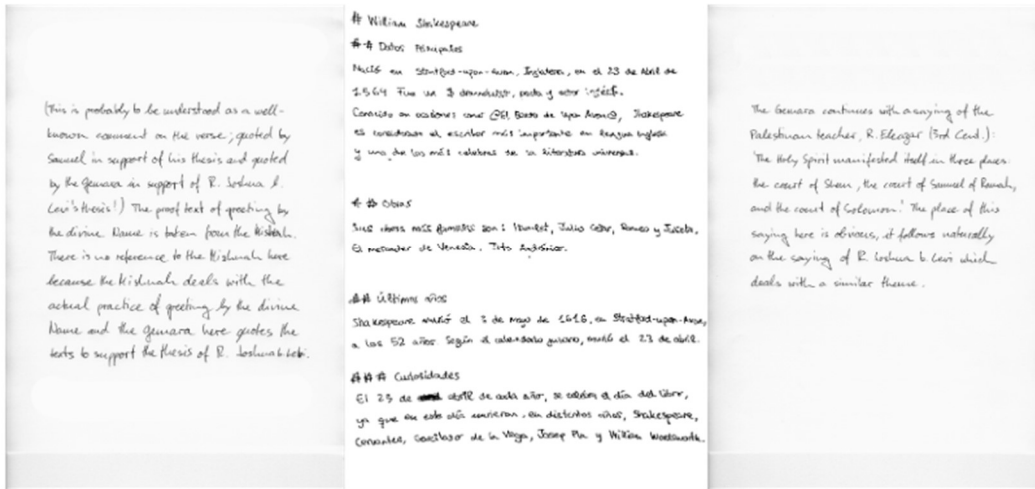 (This is probably to be understood as a well-
known comment on the verse; quoted by
Samuel in support of his thesis and quoted
by the Gemara in support of R. Joshua b.
Levi's thesis!) The proof text of greeting by
the divine Name is taken from the Mishnah.
There is no reference to the Mishnah here
because the Mishnah deals with the
actual practice of greeting by the divine
Name and the Gemara here quotes the
texts to support the thesis of R. Joshua b. Levi.
# William Shakespeare
## Datos Principales
Nació en Stratford-upon-Avon, Inglaterra, en el 23 de Abril de
1564 Fue un $ dramaturgo, poeta y actor inglés.
Conocido en ocasiones como @El Bardo de Upon Avon@, Shakespeare
es considerado el escritor más importante en lengua inglesa
y uno de los más celebres de la literatura universal.
## Obras
Sus obras más famosas son: Hamlet, Julio César, Romeo y Julieta,
El mercader de Venecia, Tito Andrónico.
## Últimos años
Shakespeare murió el 3 de mayo de 1616, en Stratford-upon-Avon,
a los 52 años. Según el calendario juliano, murió el 23 de abril.
### Curiosidades
El 23 de abril de cada año, se celebra el día del libro,
ya que en este día murieron, en distintos años, Shakespeare,
Cervantes, Garcilaso de la Vega, Josep Pla y William Wordsworth.
The Gemara continues with a saying of the
Palestinian teacher, R. Eleazar (3rd Cent.):
'The Holy Spirit manifested itself in three places:
the court of Shem, the court of Samuel of Ramah,
and the court of Solomon.' The place of this
saying here is obvious, it follows naturally
on the saying of R. Joshua b. Levi which
deals with a similar theme.